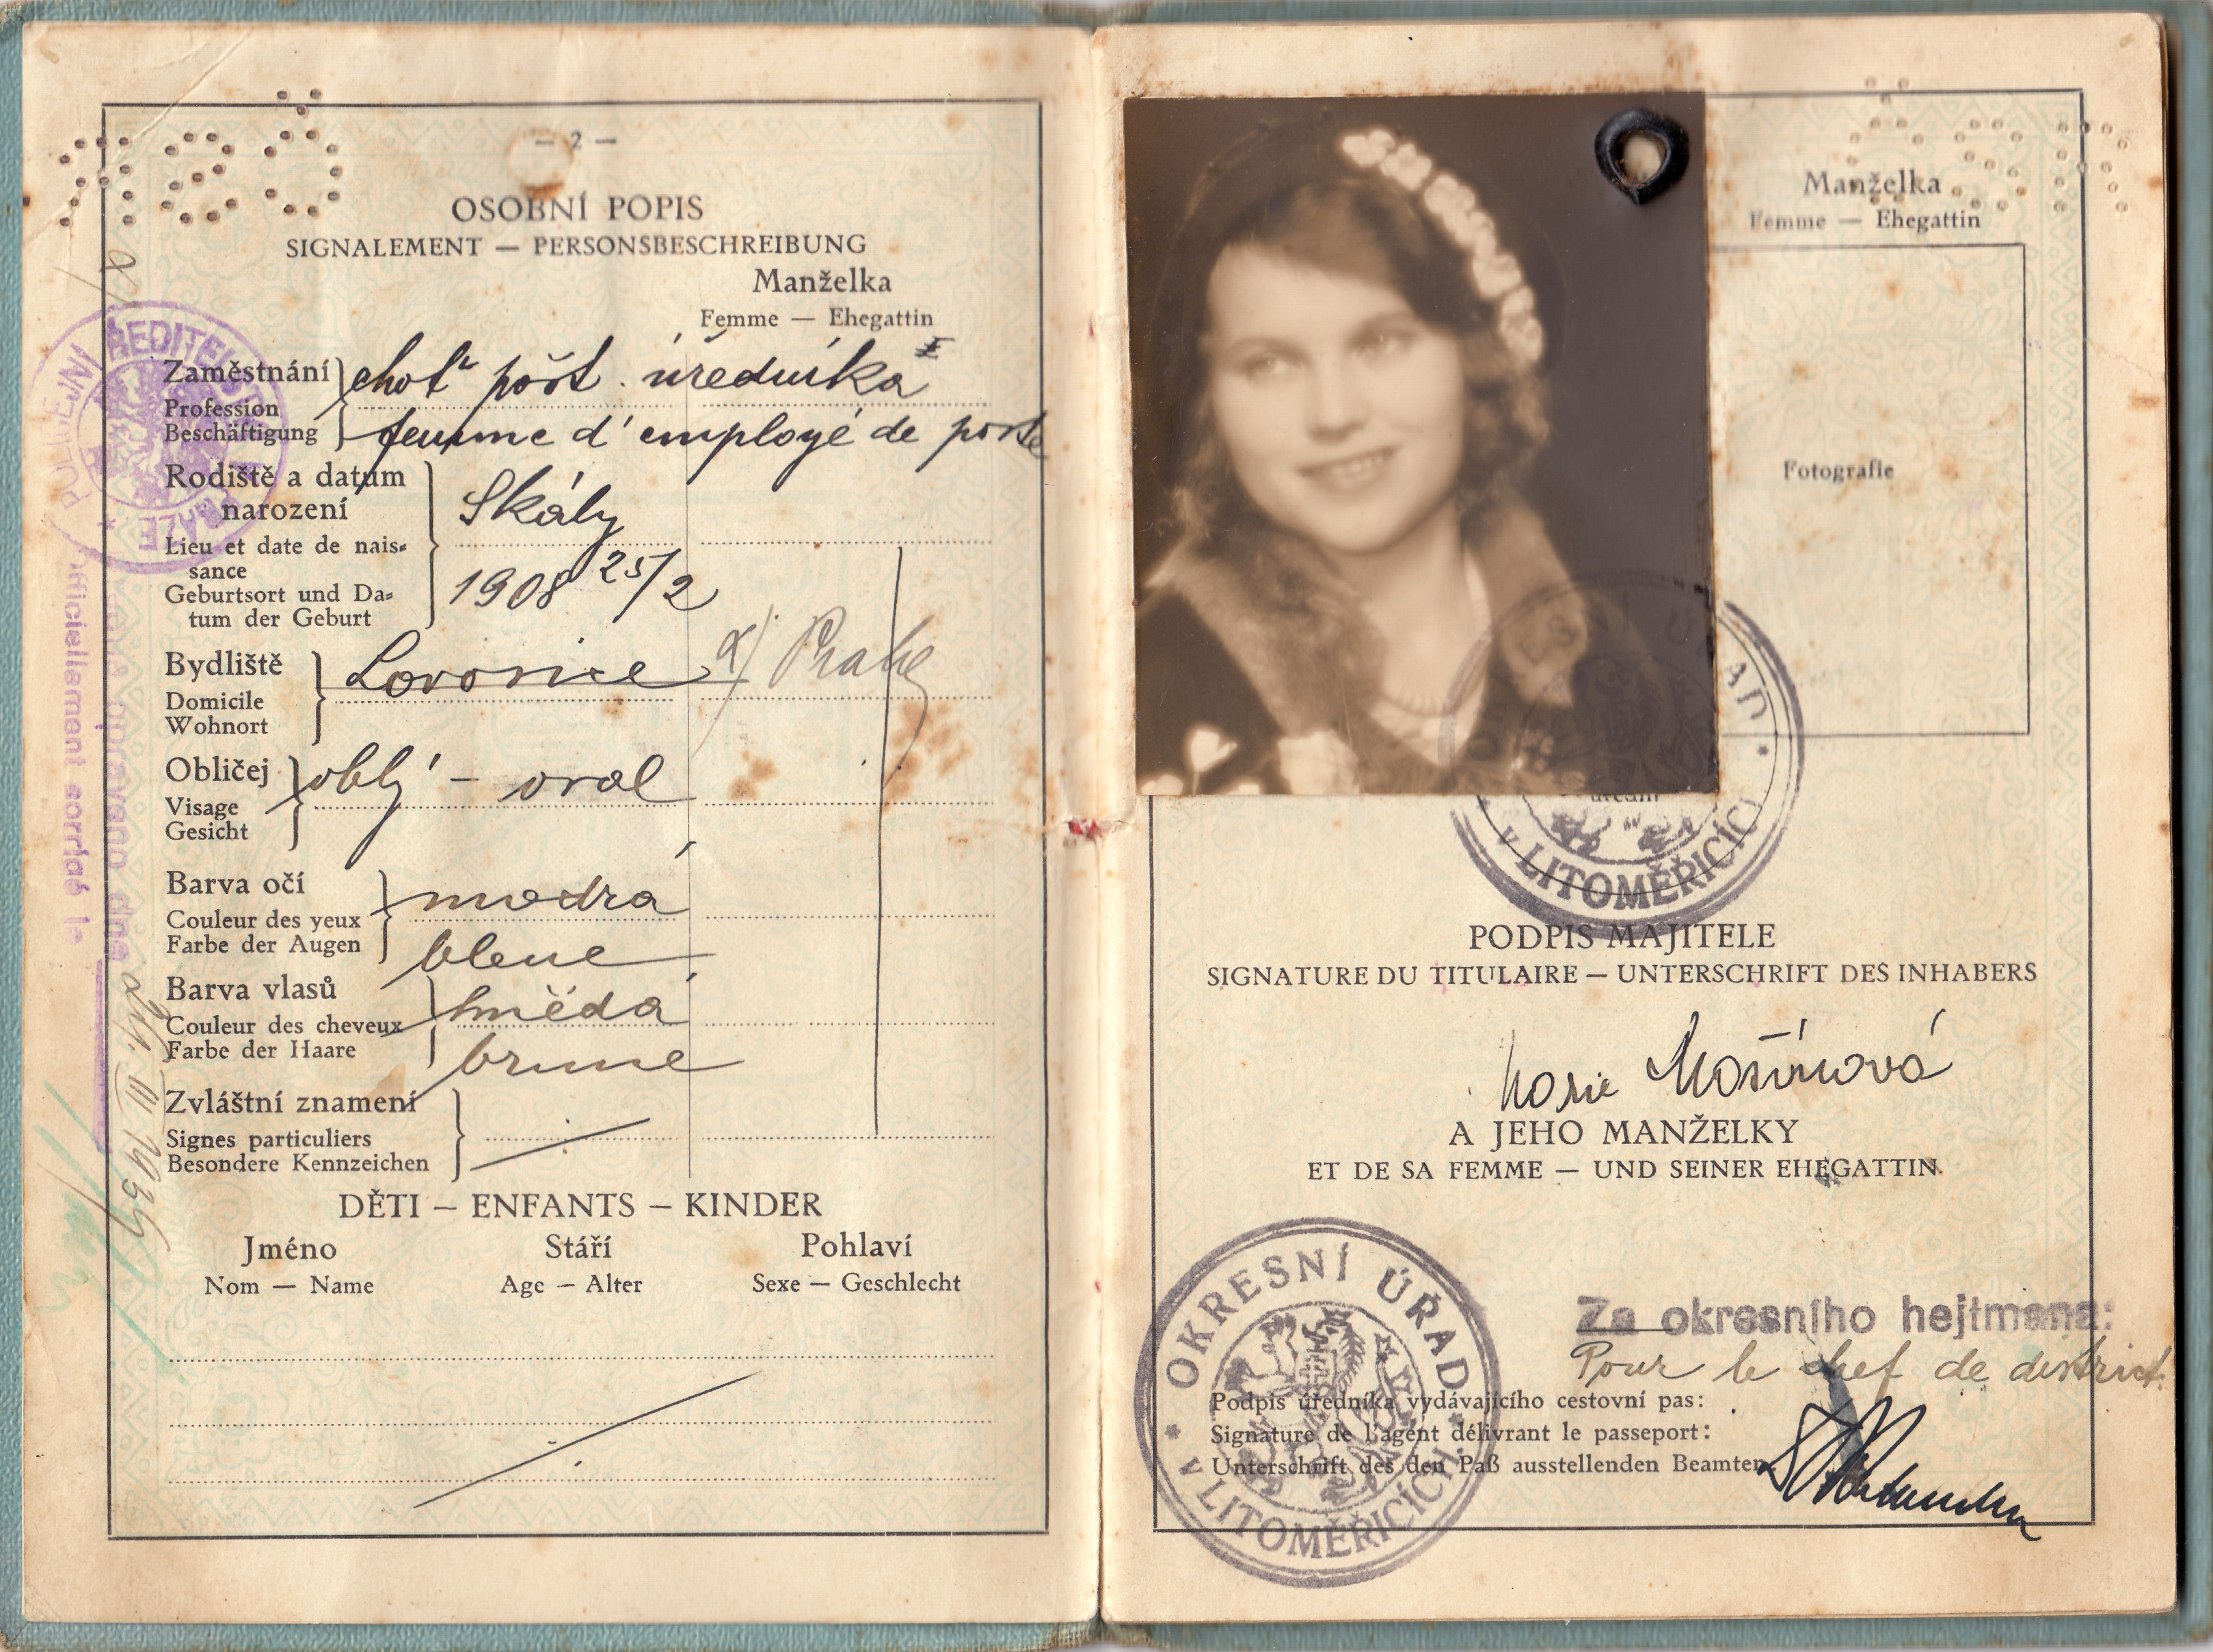 120
— 2 —
OSOBNÍ POPIS
SIGNALEMENT — PERSONSBESCHREIBUNG
Manželka
Femme — Ehegattin
Zaměstnání
Profession
Beschäftigung
choť pošt. úředníka
femme d'employé de poste
Rodiště a datum
narození
Lieu et date de nais-
sance
Geburtsort und Da-
tum der Geburt
Skály
1908 25/2
Bydliště
Domicile
Wohnort
Lovosice x/ Praha
Obličej
Visage
Gesicht
oblý - oval
Barva očí
Couleur des yeux
Farbe der Augen
modrá
bleue
Barva vlasů
Couleur des cheveux
Farbe der Haare
hnědá
brune
Zvláštní znamení
Signes particuliers
Besondere Kennzeichen
DĚTI — ENFANTS — KINDER
Jméno Stáří Pohlaví
Nom — Name Age — Alter Sexe — Geschlecht
officiellement corrigé le
úředně opraveno dne
III 1934
Manželka
Femme — Ehegattin
Fotografie
V LITOMĚŘICÍCH
PODPIS MAJITELE
SIGNATURE DU TITULAIRE — UNTERSCHRIFT DES INHABERS
Marie
A JEHO MANŽELKY
ET DE SA FEMME — UND SEINER EHEGATTIN
OKRESNÍ ÚŘAD
V LITOMĚŘICÍCH
Za okresního hejtmana:
Pour le chef de district.
Podpis úředníka vydávajícího cestovní pas:
Signature de l'agent délivrant le passeport:
Unterschrift des den Paß ausstellenden Beamten